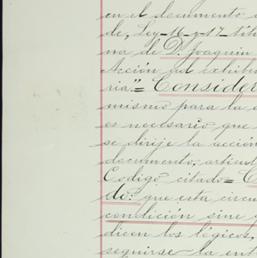 en el documento
de, Ley 16 y 17 títu
na de D. Joaquin
Acción ad exhiben
ria"= Consider
mismo para la
es necesario que
se dirije la acción
documento; articul
Codigo citado= C
do: que esta circu
condición sine
dicen los lógicos,
seguirse la ent